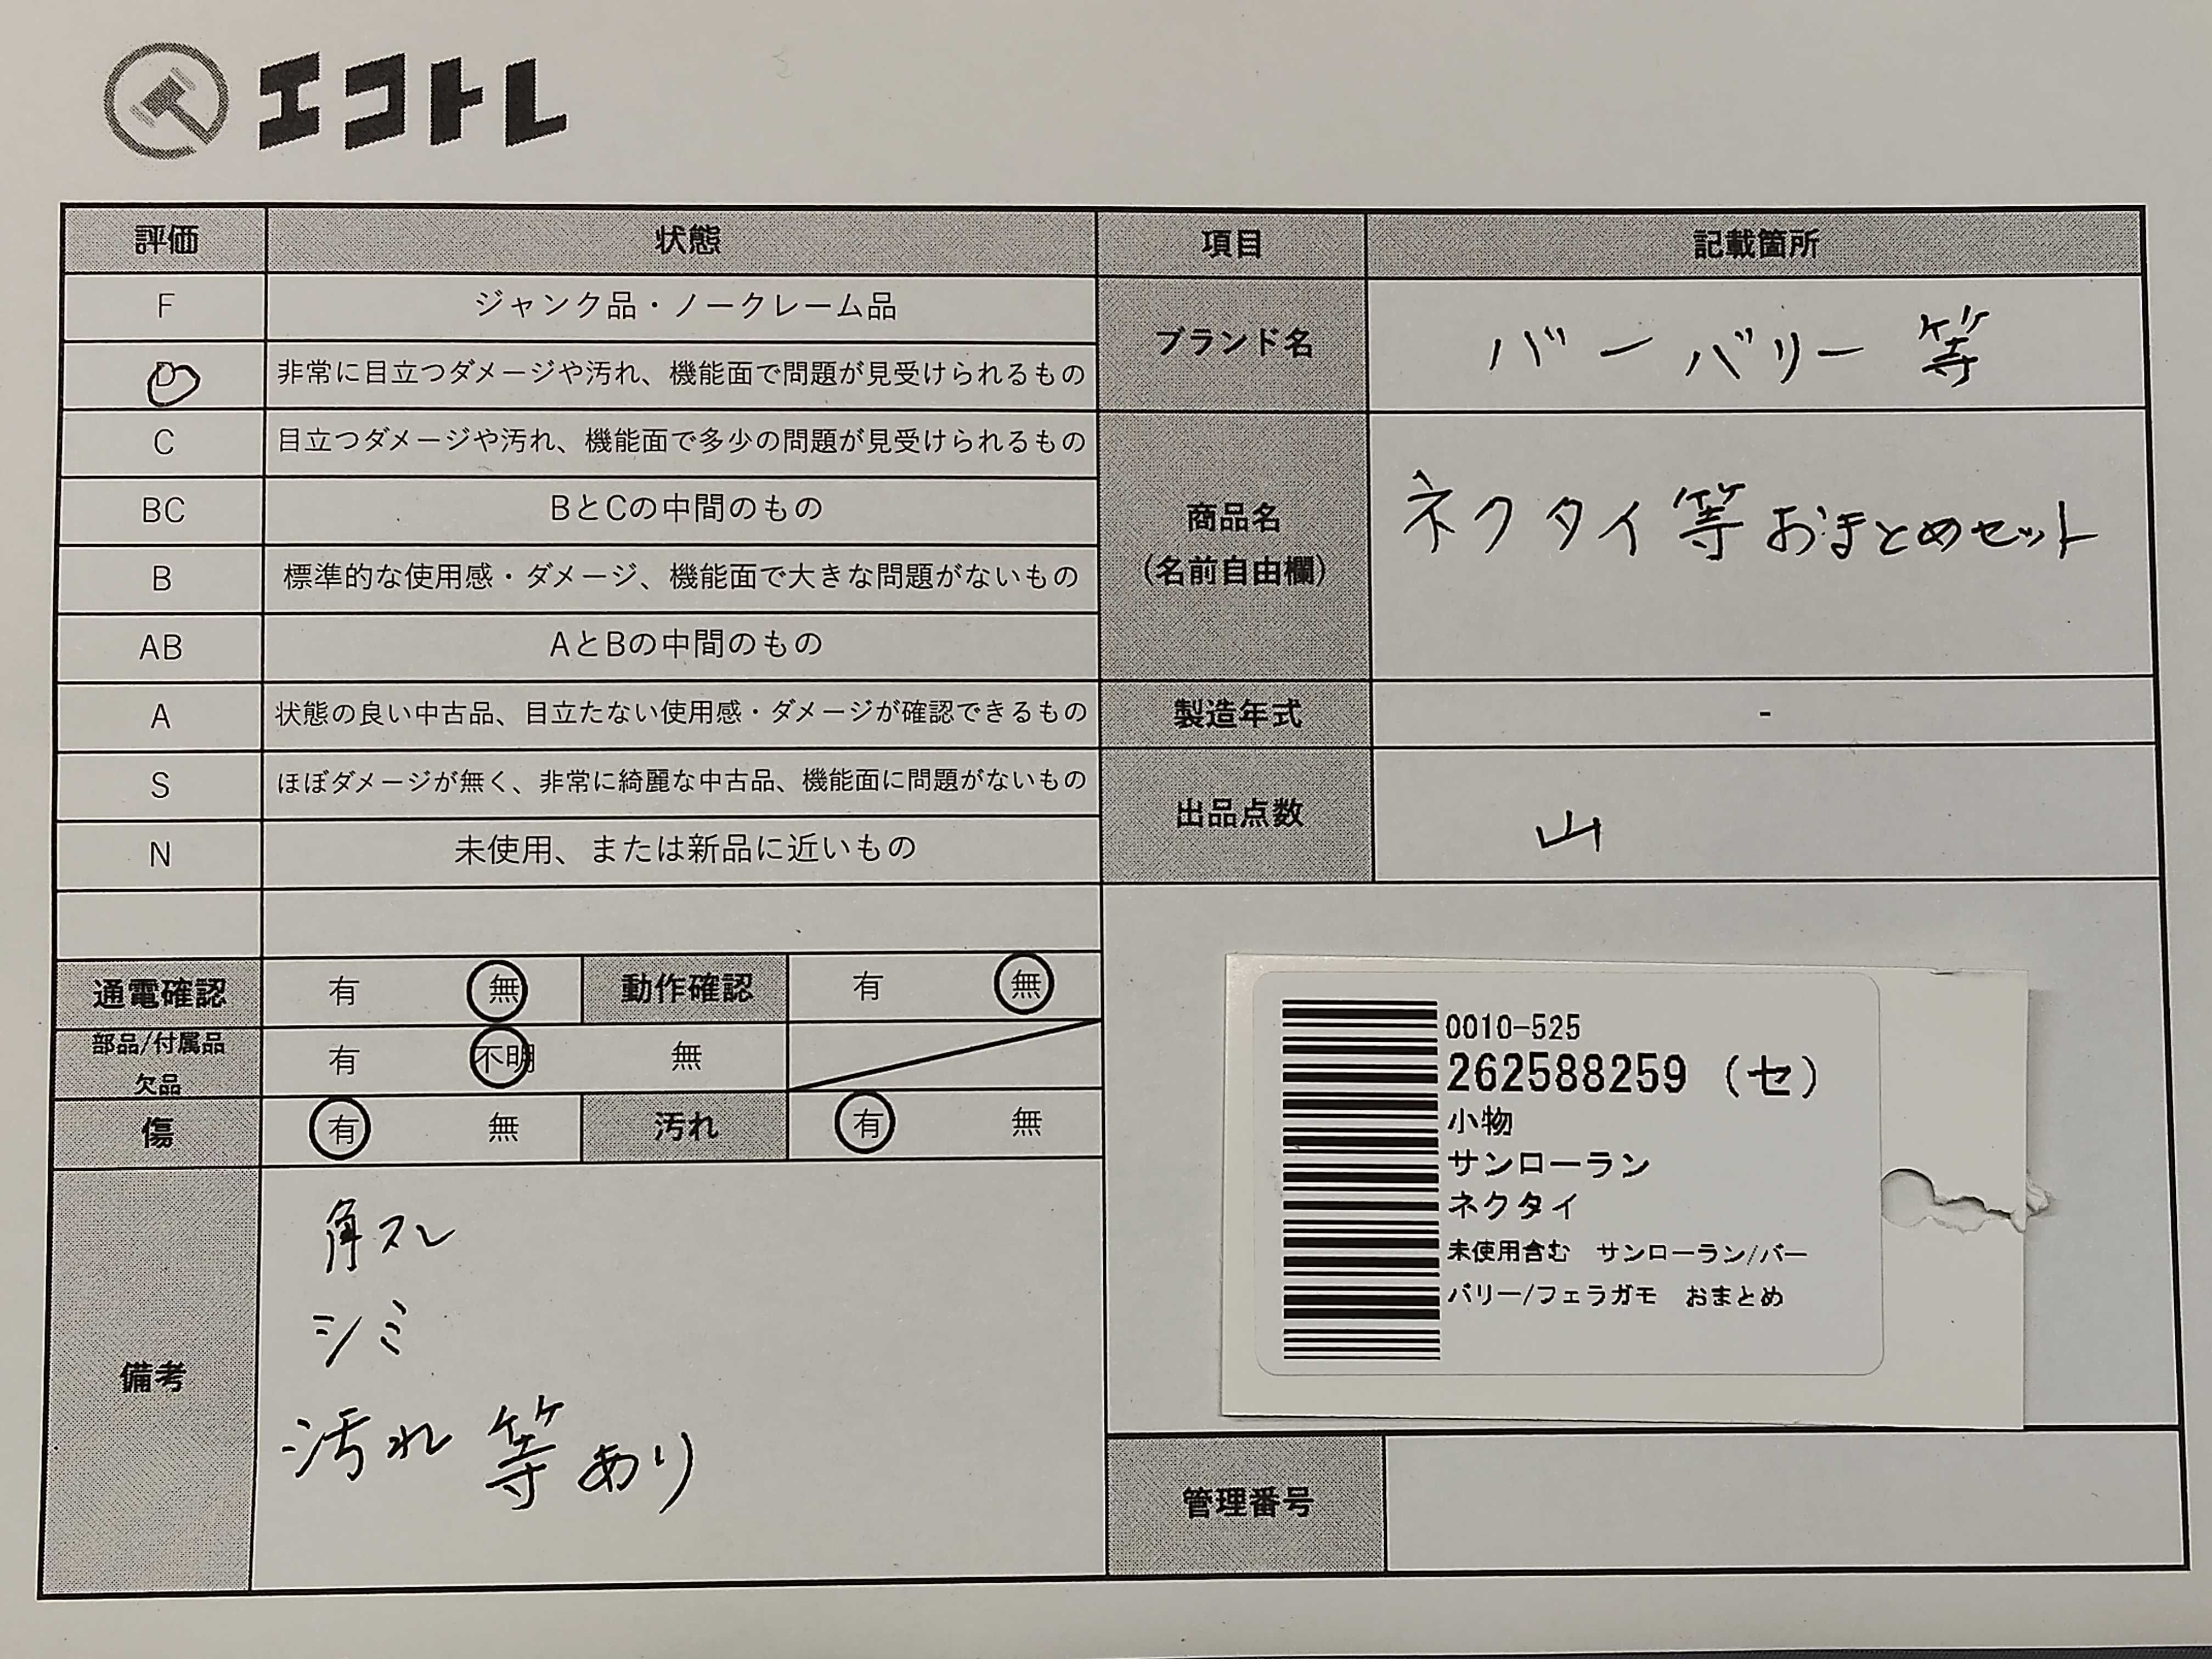 エコトレ
評価 状態
F ジャンク品・ノークレーム品
D 非常に目立つダメージや汚れ、機能面で問題が見受けられるもの
C 目立つダメージや汚れ、機能面で多少の問題が見受けられるもの
BC BとCの中間のもの
B 標準的な使用感・ダメージ、機能面で大きな問題がないもの
AB AとBの中間のもの
A 状態の良い中古品、目立たない使用感・ダメージが確認できるもの
S ほぼダメージが無く、非常に綺麗な中古品、機能面に問題がないもの
N 未使用、または新品に近いもの
通電確認 有 無 動作確認 有 無
部品/付属品
欠品 有 不明 無
傷 有 無 汚れ 有 無
備考
角スレ
シミ
汚れ 等あり
項目 記載箇所
ブランド名 バーバリー 等
商品名
(名前自由欄)
ネクタイ等おまとめセット
製造年式 -
出品点数 山
0010-525
262588259 (セ)
小物
サンローラン
ネクタイ
未使用含む サンローラン/バー
バリー/フェラガモ おまとめ
管理番号